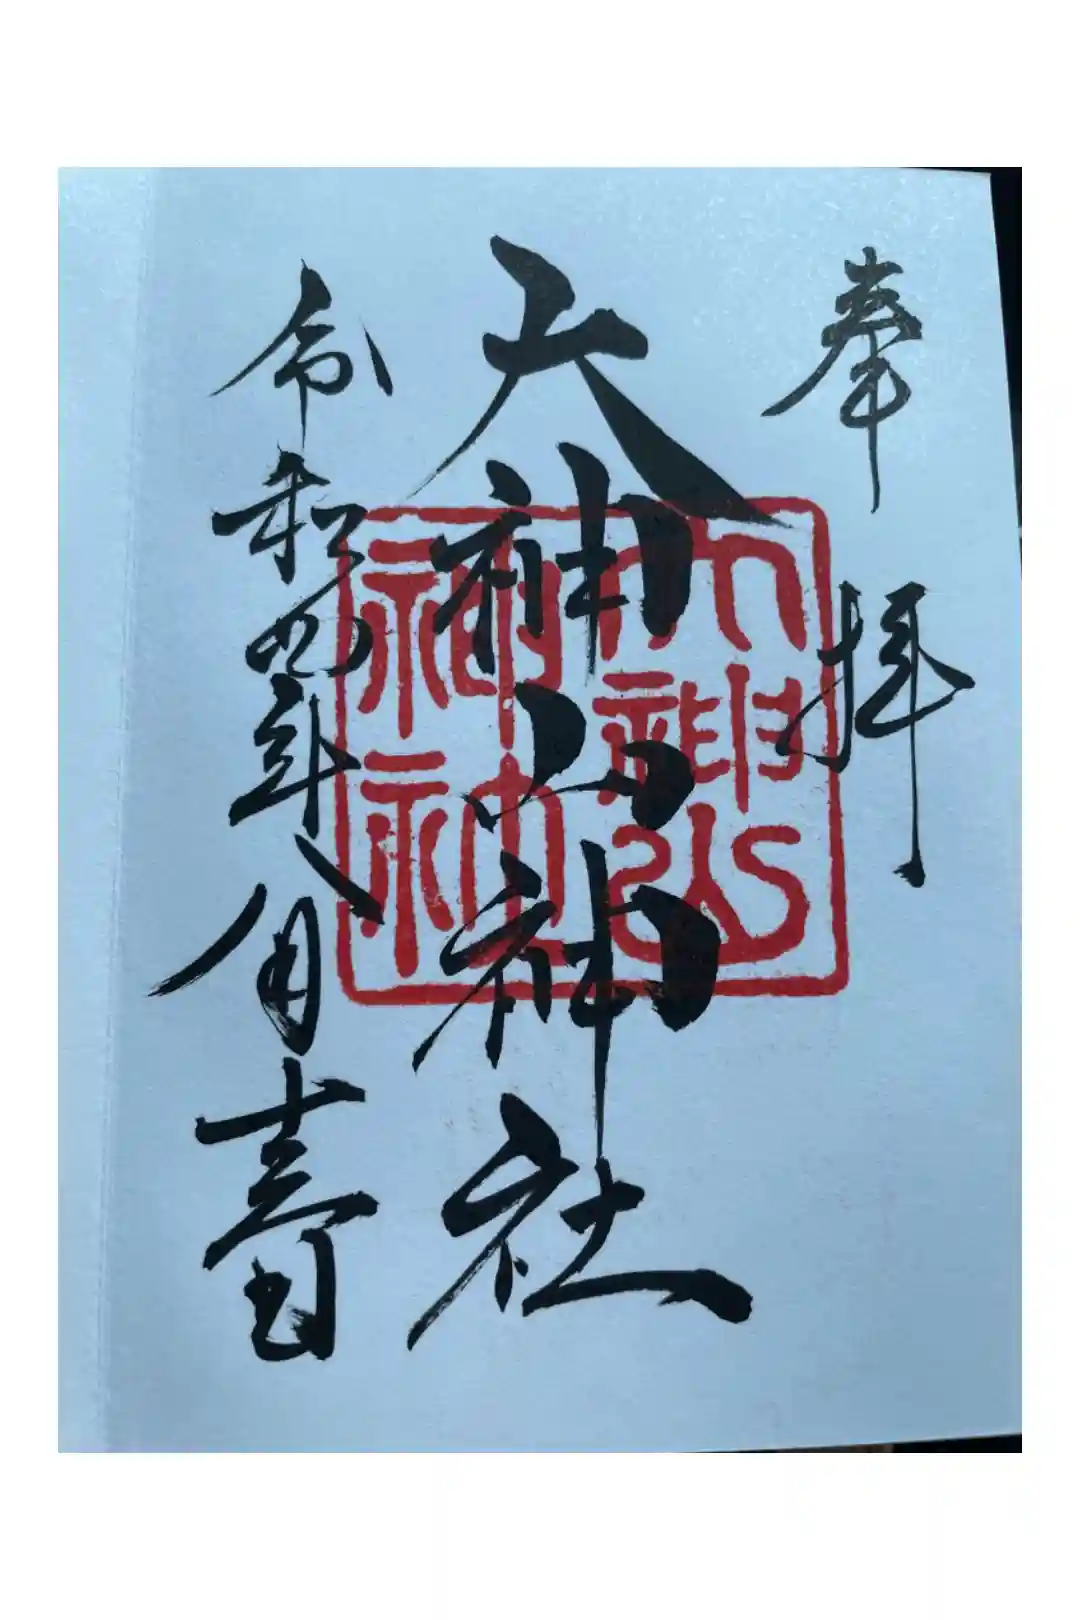 奉拝
大神山神社
令和四年八月十三日
大神山
神社